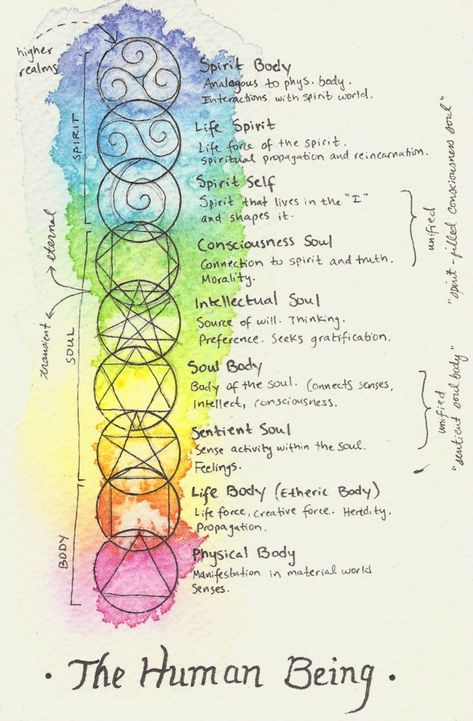 higher
realms
Spirit Body
Analogous to phys. body.
Interactions with spirit world.
Life Spirit
Life force of the spirit.
spiritual propagation and reincarnation.
SPIRIT
Spirit Self
Spirit that lives in the "I"
and shapes it.
unified
"spirit-filled consciousness soul"
eternal
transient
Consciousness Soul
Connection to spirit and truth.
Morality.
Intellectual Soul
Source of will. Thinking.
Preference. Seeks gratification.
SOUL
Soul Body
Body of the soul. Connects senses,
intellect, consciousness.
unified
"sentient soul body"
Sentient Soul
Sense activity within the soul.
Feelings.
Life Body (Etheric Body)
Life force, creative force. Heridity.
Propagation.
BODY
Physical Body
Manifestation in material world
Senses.
· The Human Being ·